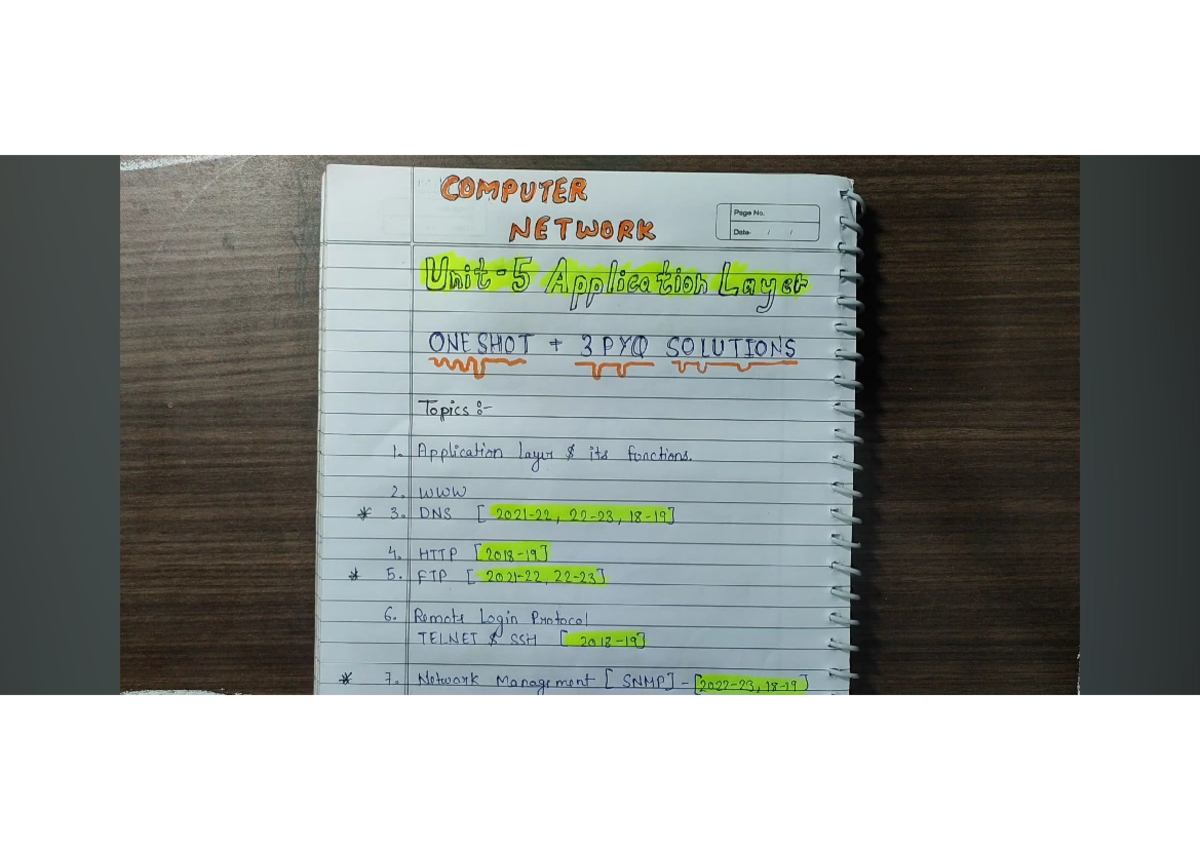 COMPUTER
NETWORK
Page No.
Date / /
Unit-5 Application Layer
ONE SHOT + 3 PYQ SOLUTIONS
Topics :-
1. Application layer & its functions.
2. WWW
* 3. DNS [ 2021-22, 22-23, 18-19]
4. HTTP [2018-19]
* 5. FTP [ 2021-22, 22-23]
6. Remote Login Protocol
TELNET & SSH [ 2018-19]
* 7. Network Management [ SNMP] - [2022-23, 18-19]